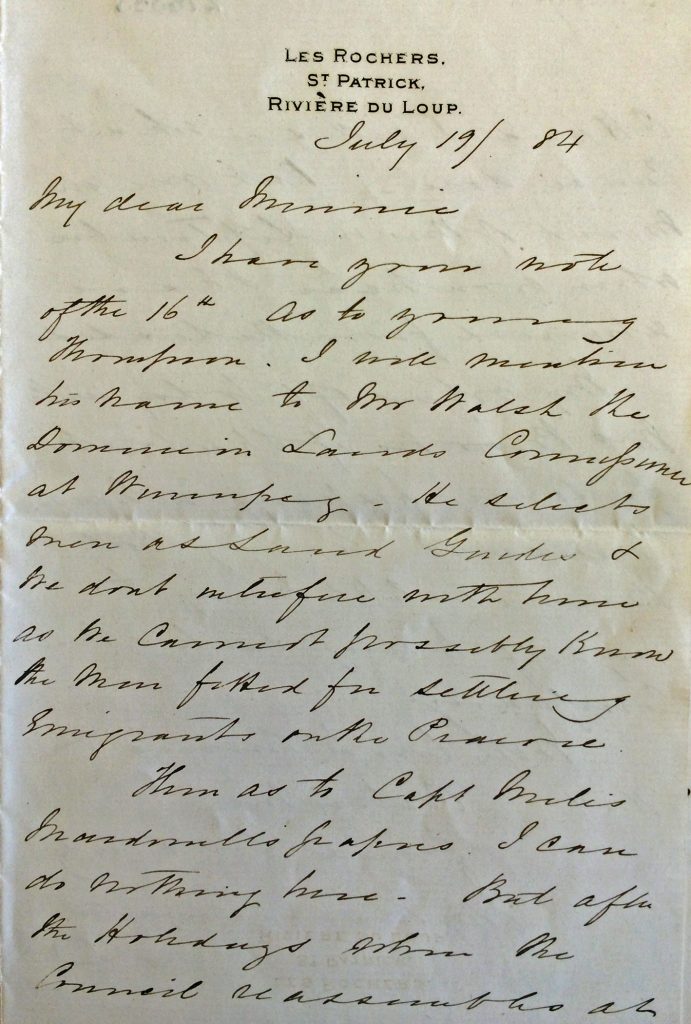 LES ROCHERS,
ST PATRICK,
RIVIÈRE DU LOUP.
July 19/ 84
My dear Minnie
I have your note
of the 16th As to young
Thompson. I will mention
his name to Mr Walsh the
Dominion Lands Commissioner
at Winnipeg - He selects
men as Land Guides &
we dont interfere with him
as we cannot possibly Know
the men fitted for settling
Emigrants on the Prairie
Then as to Capt Miles
Macdonells papers I can
do nothing here - But after
the Holidays when the
Council reassembles at